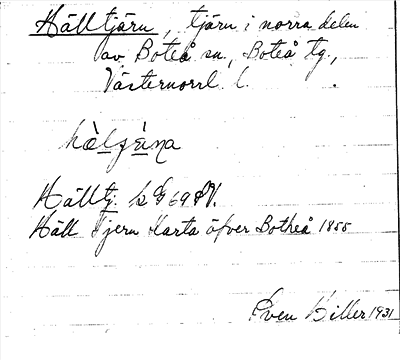 Hälltjärn, tjärn i norra delen
av Boteå sn, Boteå tg.,
Västernorrl. l.
Hälltj.
Häll Tjern Karta öfver Botheå 1855
Even Hiller 1931